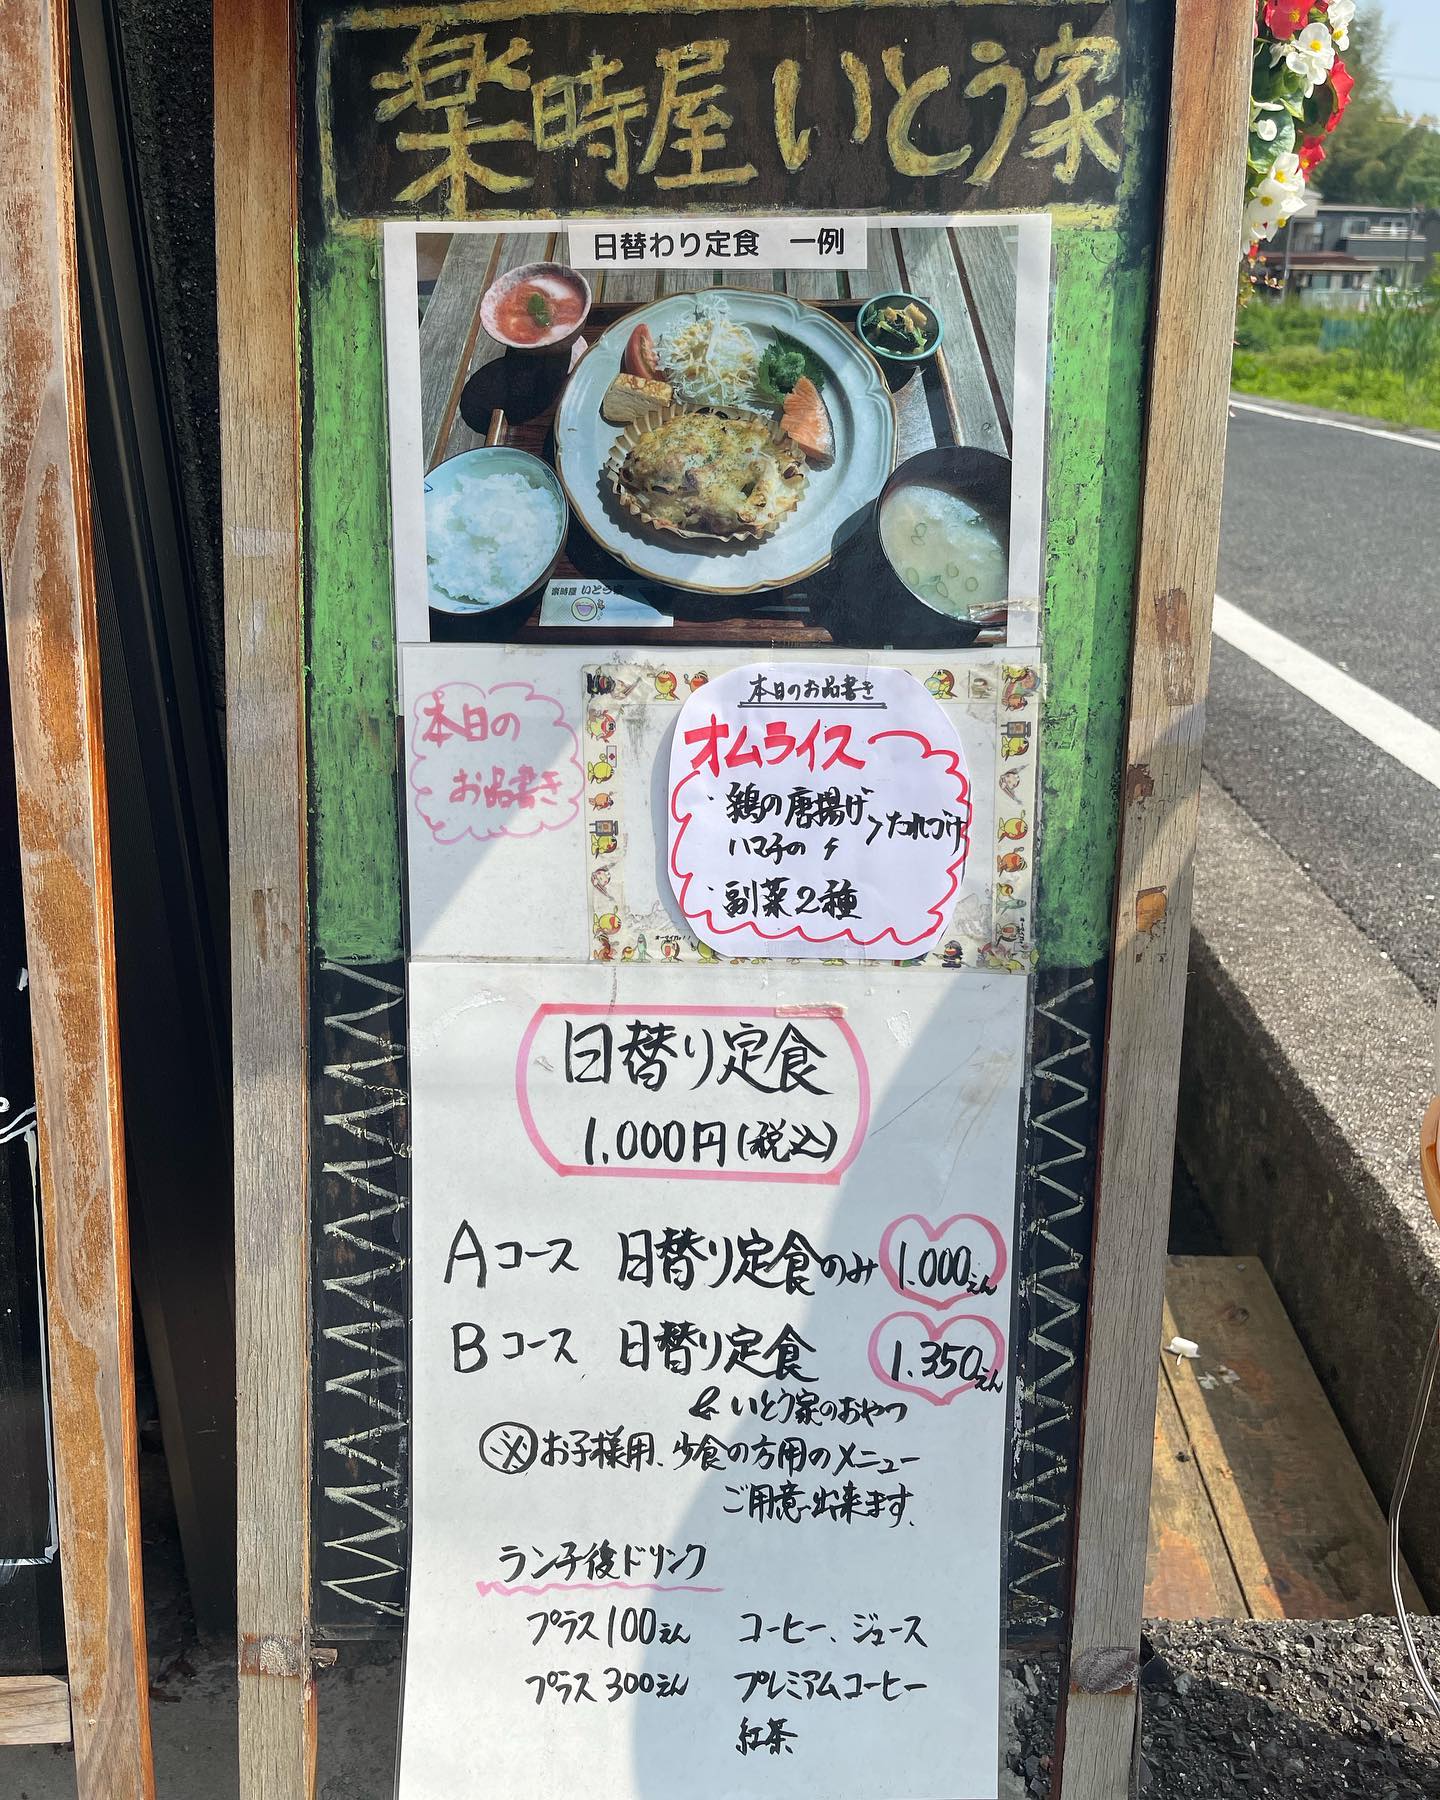 楽時屋 いとう家
日替わり定食 一例
楽時屋 いとう家
本日の
お品書き
本日のお品書き
オムライス
・鶏の唐揚げ
ハマ子の 〃 >たれづけ
・副菜2種
日替り定食
1.000円(税込)
Aコース 日替り定食のみ 1.000えん
Bコース 日替り定食 1.350えん
& いとう家のおやつ
※お子様用、少食の方用のメニュー
ご用意出来ます。
ランチ後ドリンク
プラス100えん コーヒー、ジュース
プラス300えん プレミアムコーヒー
紅茶